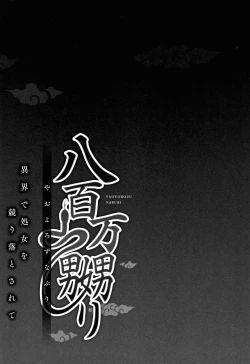 八百万嬲り
やおよろずなぶり
YAOYOROZU
NABURI
異界で処女を
競り落とされて